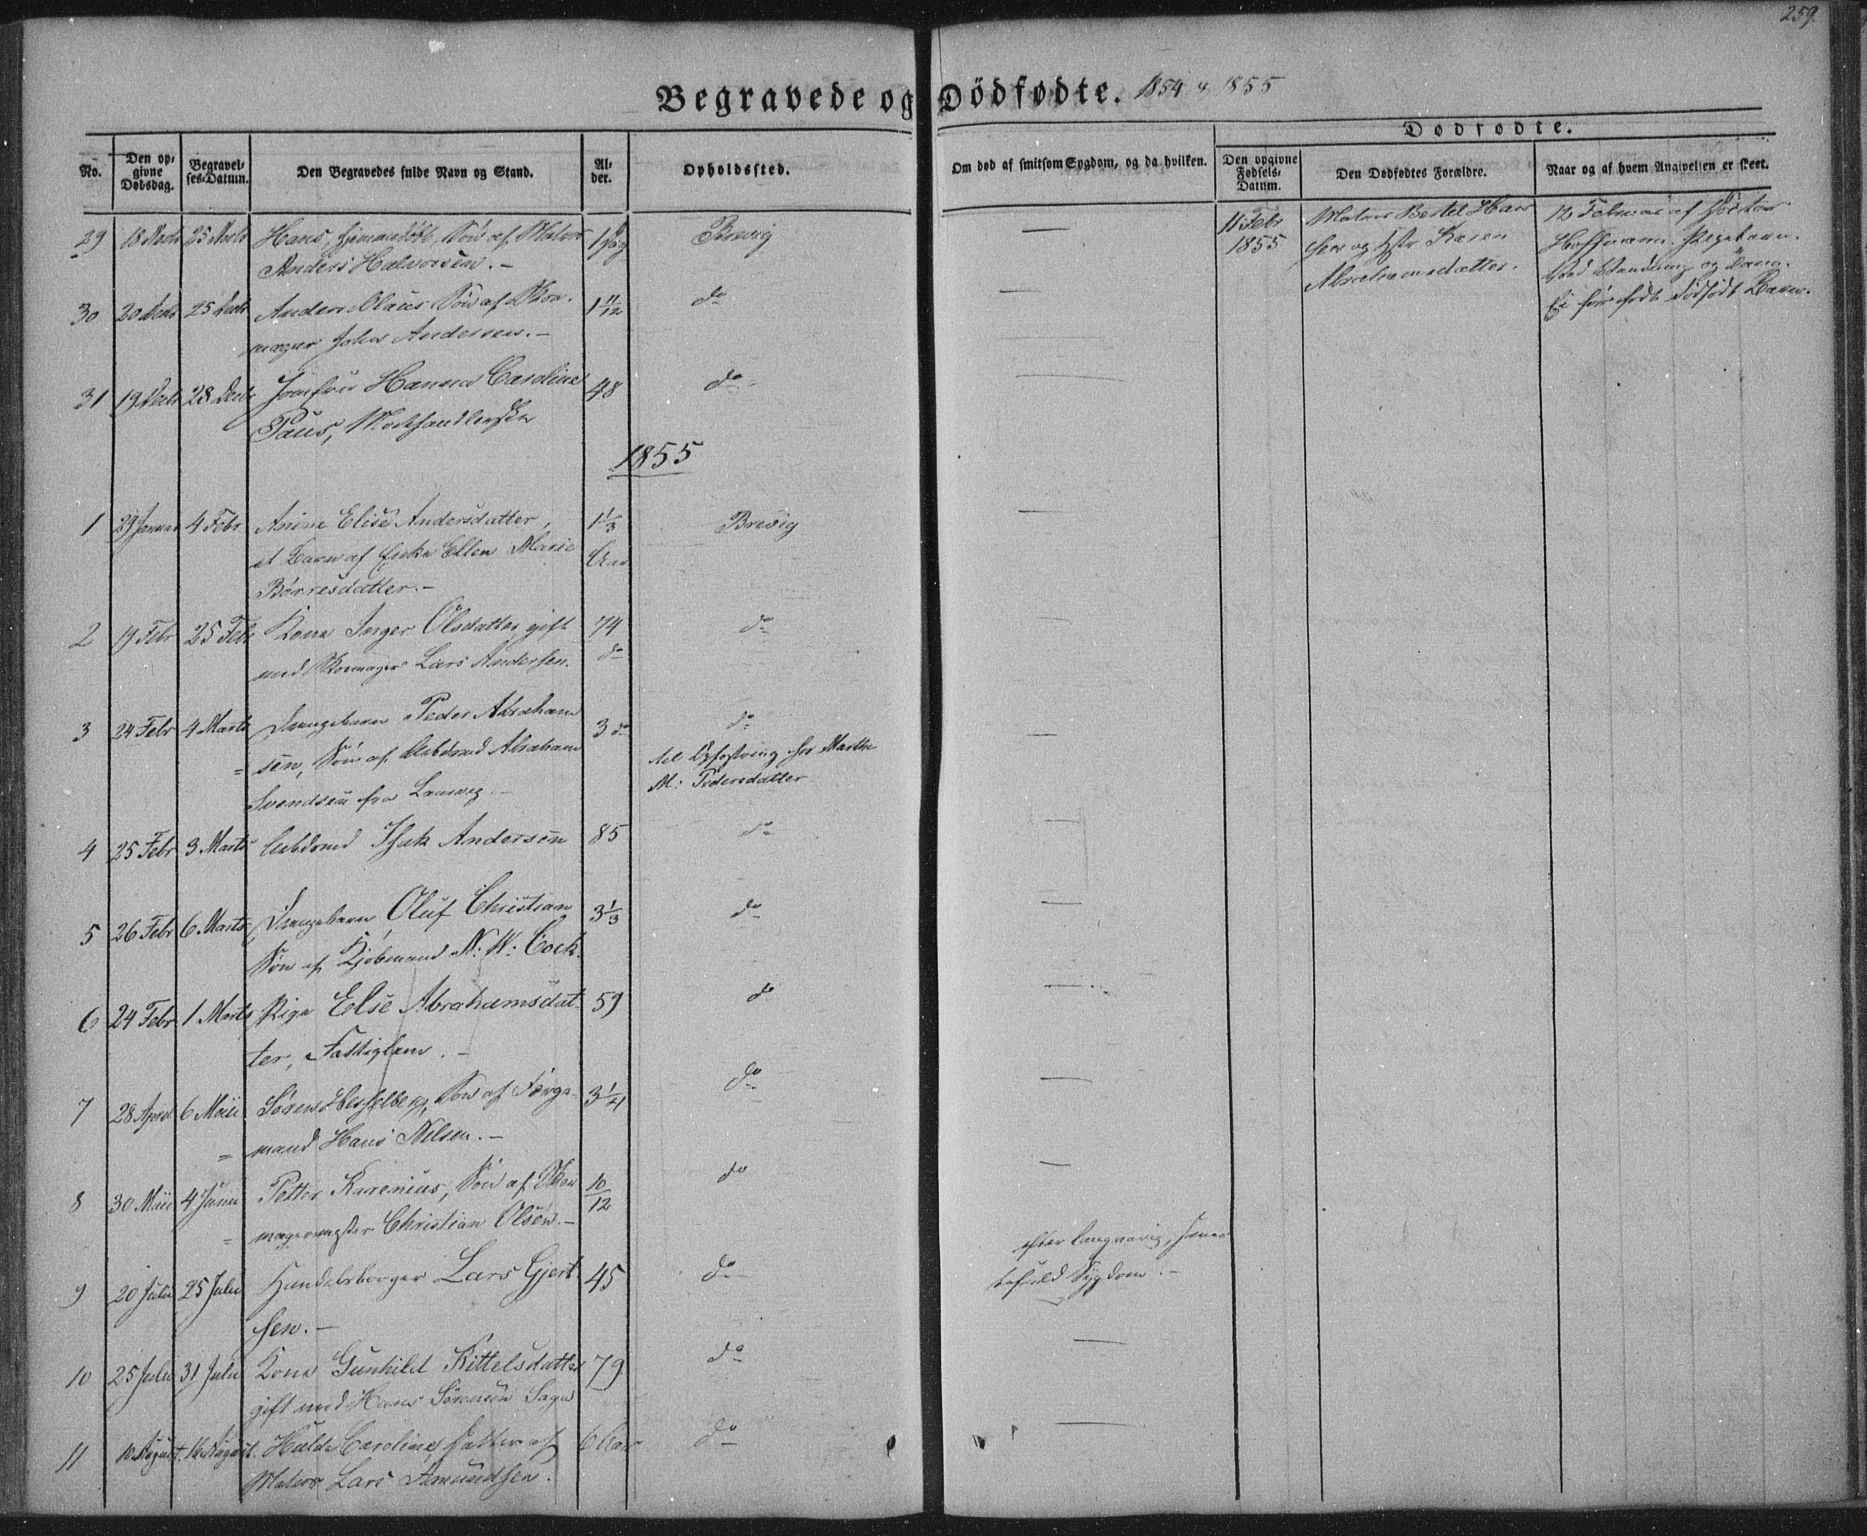 259.
Begravede og Dödfødte. 1854 & 1855
Dødfødte.
No.
Den op-
givne
Dødsdag.
Begravel-
ses-Datum.
Den Begravedes fulde Navn og Stand.
Al-
der.
Opholdssted.
Om død af smitsom Sygdom, og da hvilken.
Den opgivne
Fødsels-
Datum.
Den Dødfødtes Forældre.
Naar og af hvem Angivelsen er skeet.
29 18 Decbr 25 Decbr Hans, hjemmedøbt, Søn af Matros 1 Dag Brevig
Anders Halvorsen. -
11 Febr
1855
Matros Bertel Han
sen og Hstr Karen
Abrahamsdatter.
12 Februar af Doctor
Hoffmann. Pigebarn.
Ved Vending og
Ei før født dødfødt Barn.
30 20 Decbr 25 Decbr Anders Olaus Søn af Skoe- 1 11/12 do
mager John Andersen. -
31 19 Decbr 28 Decbr Jomfru Hanna Caroline 48 do
Paus, Modehandlerske
1855
1 29 Januar 4 Febr. Anine Elise Andersdatter, 1 1/3 Brevig
et Barn af Enke Ellen Marie Aar
Börresdatter. -
2 19 Febr 25 Febr Kone Inger Olsdatter gift 74 do
med Skomager Lars Andersen. do
3 24 Febr 4 Marts Drengebarn Peder Abraham 3 do do
sen, Søn af Arbdmd Abraham
Svendsen fra Laurvig. -
til Opfostring hos Marthe
M: Pedersdatter
4 25 Febr 3 Marts Arbdmd Isak Andersen 85 do
5 26 Febr 6 Marts Drengebarn Oluf Christian 3 1/3 do
Søn af Kjøbmand N: W: Cock.
6 24 Febr 1 Marts Pige Else Abrahamsdat- 59 do
ter, Fattiglem. -
7 28 April 6 Maii Søren Hesselberg, Søn af Færge- 3 1/4 do
mand Hans Nilsen. -
8 30 Maii 4 Juni Petter Karenius, Søn af Skoe 10/12 do
magermester Christian Olsen. -
9 20 Julii 25 Julii Handelsborger Lars Gjert 45 do
sen. -
efter langvarig,
Sygdom. -
10 25 Julii 31 Julii Kone Gunhild Kittelsdatter 79 do
gift med Hans Sørensen Saga
11 10 August. 16 August. Hulda Caroline, Datter af 6 Aar do
Matros Lars Amundsen.